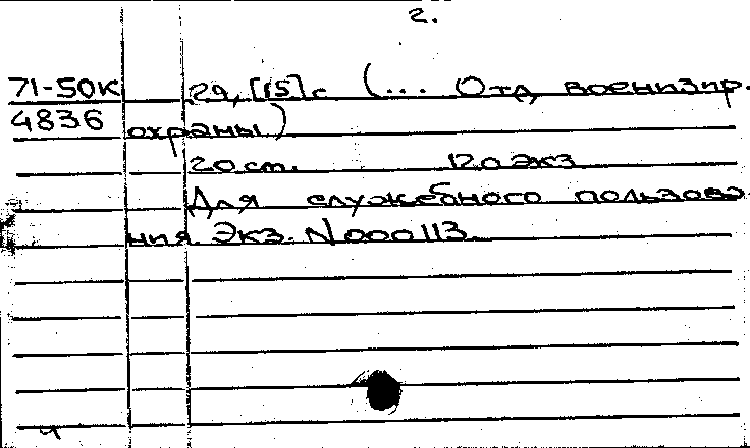 2.
71-50к 29, [15] с (... Отд военизир.
4836 охраны)
20 см. 120 экз
Для служебного пользова
ния. Экз. N000113